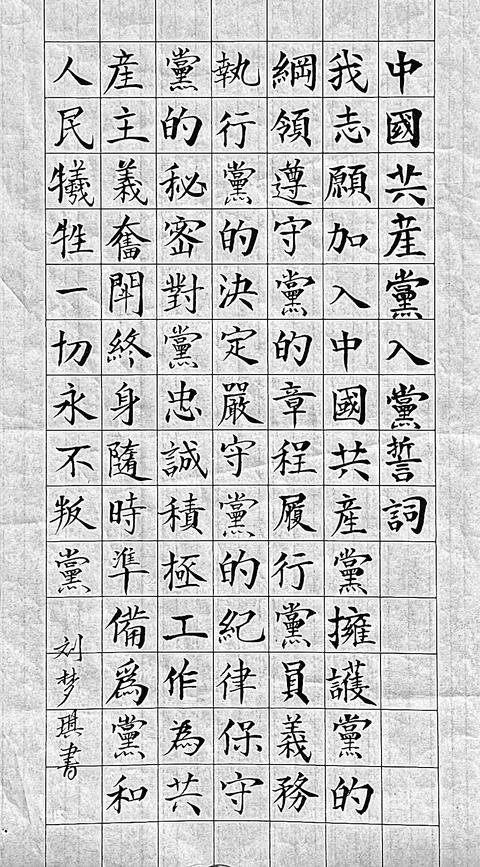 中國共産黨入黨誓詞
我志願加入中國共産黨擁護黨的
綱領遵守黨的章程履行黨員義務
執行黨的決定嚴守黨的紀律保守
黨的秘密對黨忠誠積極工作為共
産主義奮閗終身隨時準備爲黨和
人民犧牲一切永不叛黨
刘梦琪書